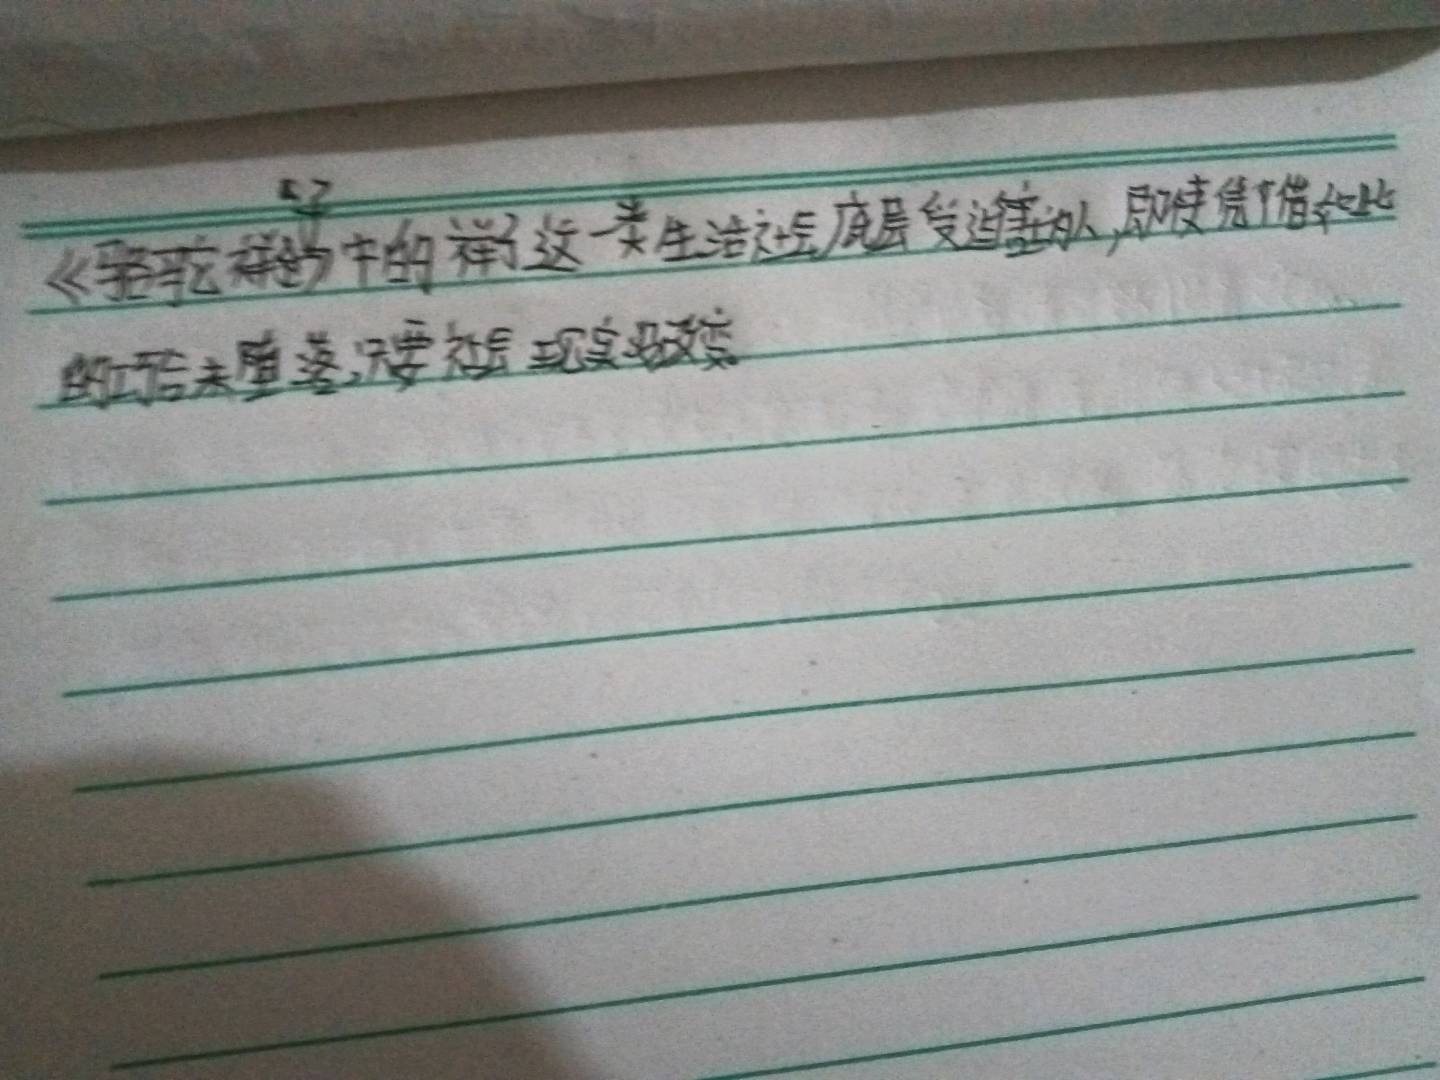 《骆驼祥子》中的祥子这一类生活社会底层受迫害的人,即使凭借如此
的后未堕落,只要社会现实没改变。